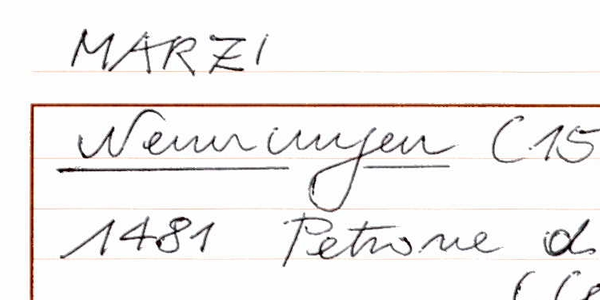 MARZI
Nennungen (15
1481 Petrone d.